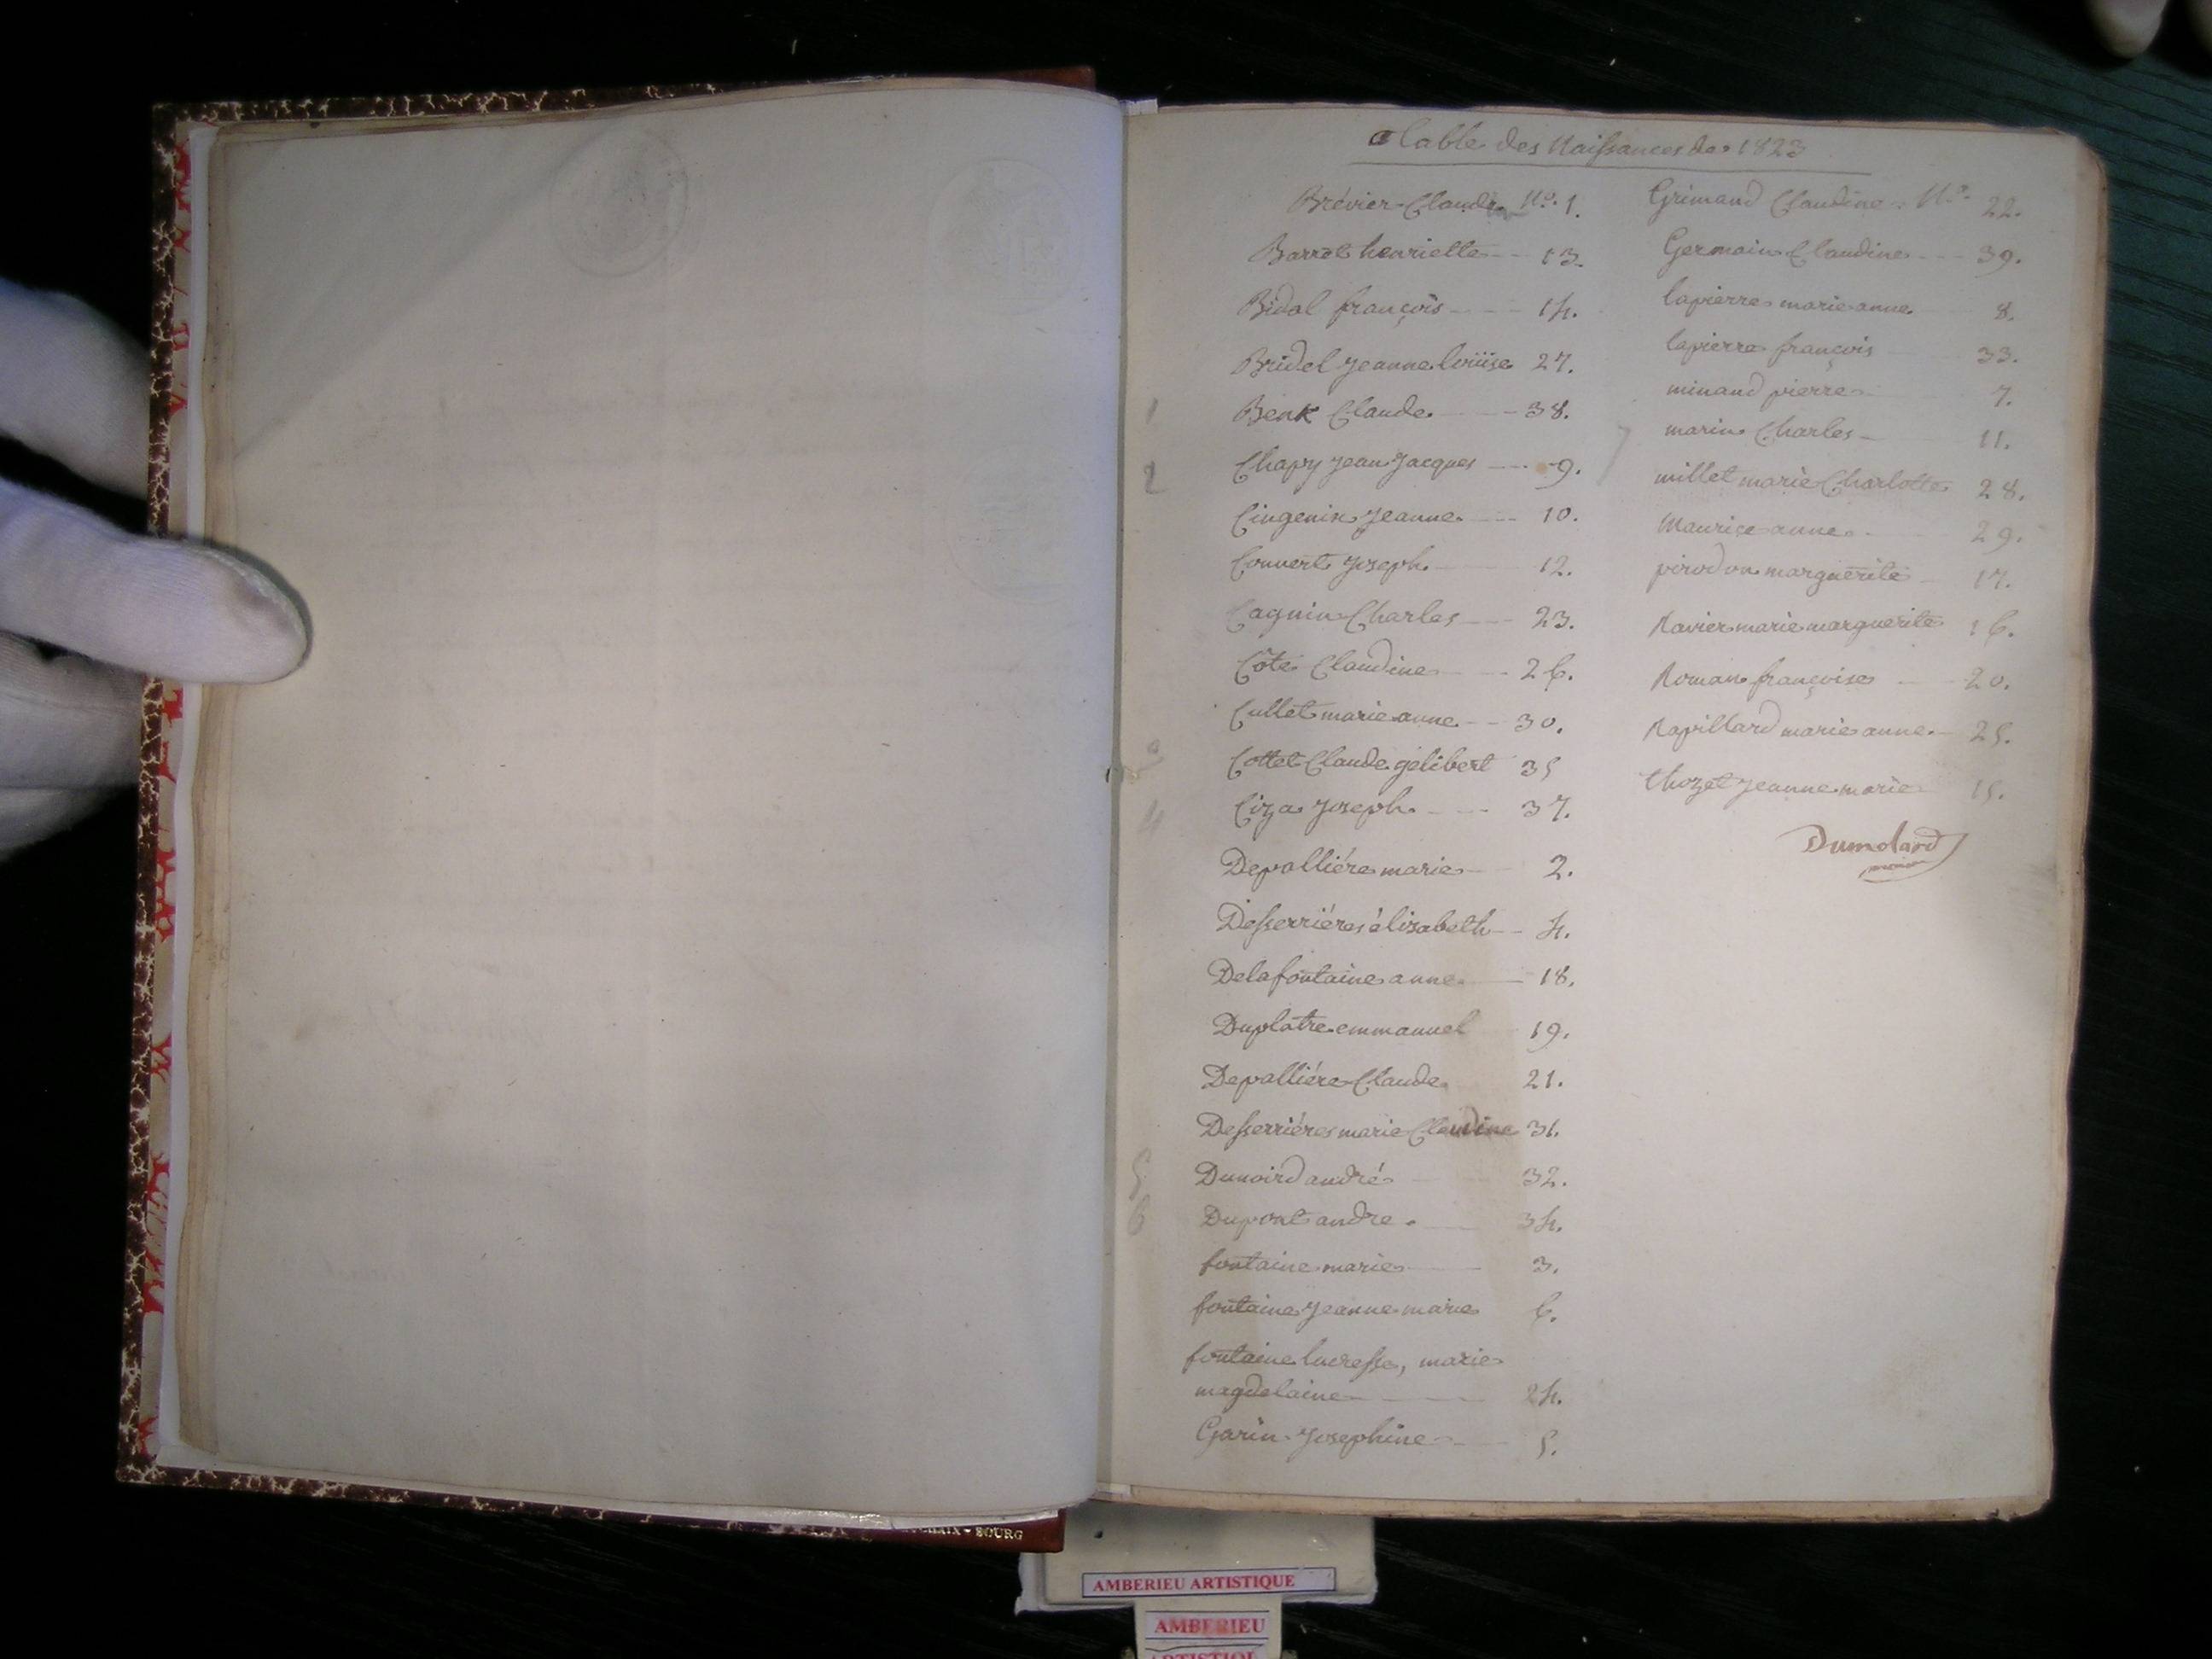 Table des Naissances de 1823
Brévier Claude N.º 1.
Barret henriette 13.
Bidal françois 14.
Bridel jeanne loüise 27.
Benk Claude 38.
Chapy jean jacques 9.
Cingenin jeanne 10.
Convert joseph 12.
Cagnin Charles 23.
Côte Claudine 26.
Cullet marie anne 30.
Cottet Claude gélibert 35
Ciza joseph 37.
Depalliére marie 2.
Desserriéres élizabeth 4.
Delafontaine anne 18.
Duplatre emmanuel 19.
Depalliére Claude 21.
Desserriéres marie Claudine 31.
Dunoird andré 32.
Dupont andre 34.
fontaine marie 3.
fontaine jeanne marie 6.
fontaine lucresse, marie
magdelaine 24.
Garin josephine 5.
Grimand Claudine N.º 22.
Germain Claudine 39.
lapierre marie anne 8.
lapierre françois 33.
minand pierre 7.
marin Charles 11.
millet marie Charlotte 28.
Maurise anne 29.
pirodon marguerite 17.
Ravier marie marguerite 16.
Roman françoise 20.
Rapillard marie anne 25.
thozet jeanne marie 15.
Dumolard
1
2
3
4
5
6
7
BOURG
AMBERIEU ARTISTIQUE
AMBERIEU
ARTISTIQUE